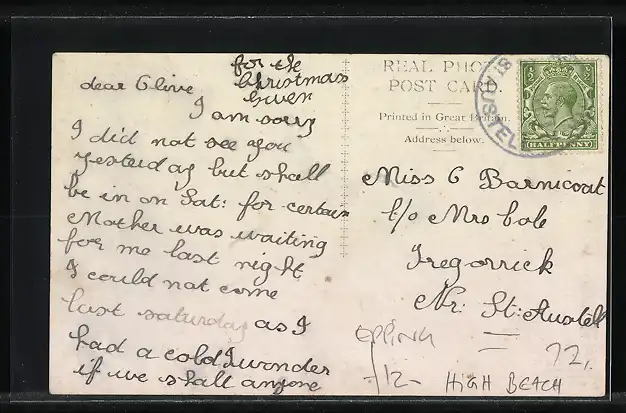 for the
Christmas
Given
dear Olive
I am sorry
I did not see you
yesterday but shall
be in on Sat: for certain
Mother was waiting
for me last night
I could not come
last saturday as I
had a cold I wonder
if we shall anyone
REAL PHO
POST CARD.
Printed in Great Britain.
Address below.
HALFPENNY
Miss O Barnicoat
C/o Mrs Cole
Tregorrick
Nr. St: Austell
EPPING
-/12-
HIGH BEACH